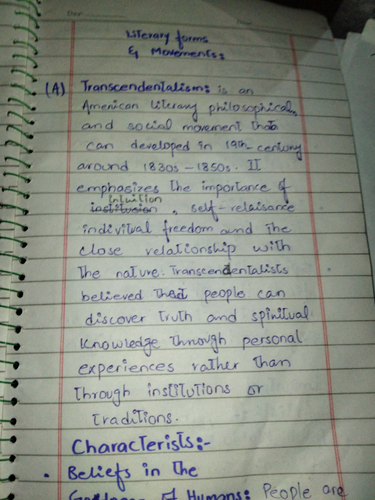 Literary forms
& Movements:
(A) Transcendentalism: is an
American literary philosophical,
and social movement that
can developed in 19th-century
around 1830s-1850s. It
emphasizes the importance of
Intuition
institusion, self-relaisance
indivitual freedom and the
close relationship with
the nature. Transcendentalists
believed that people can
discover truth and spiritual
Knowledge through personal
experiences rather than
through institutions or
traditions.
Characterists:-
• Beliefs in the
Goodness of Humans: People are